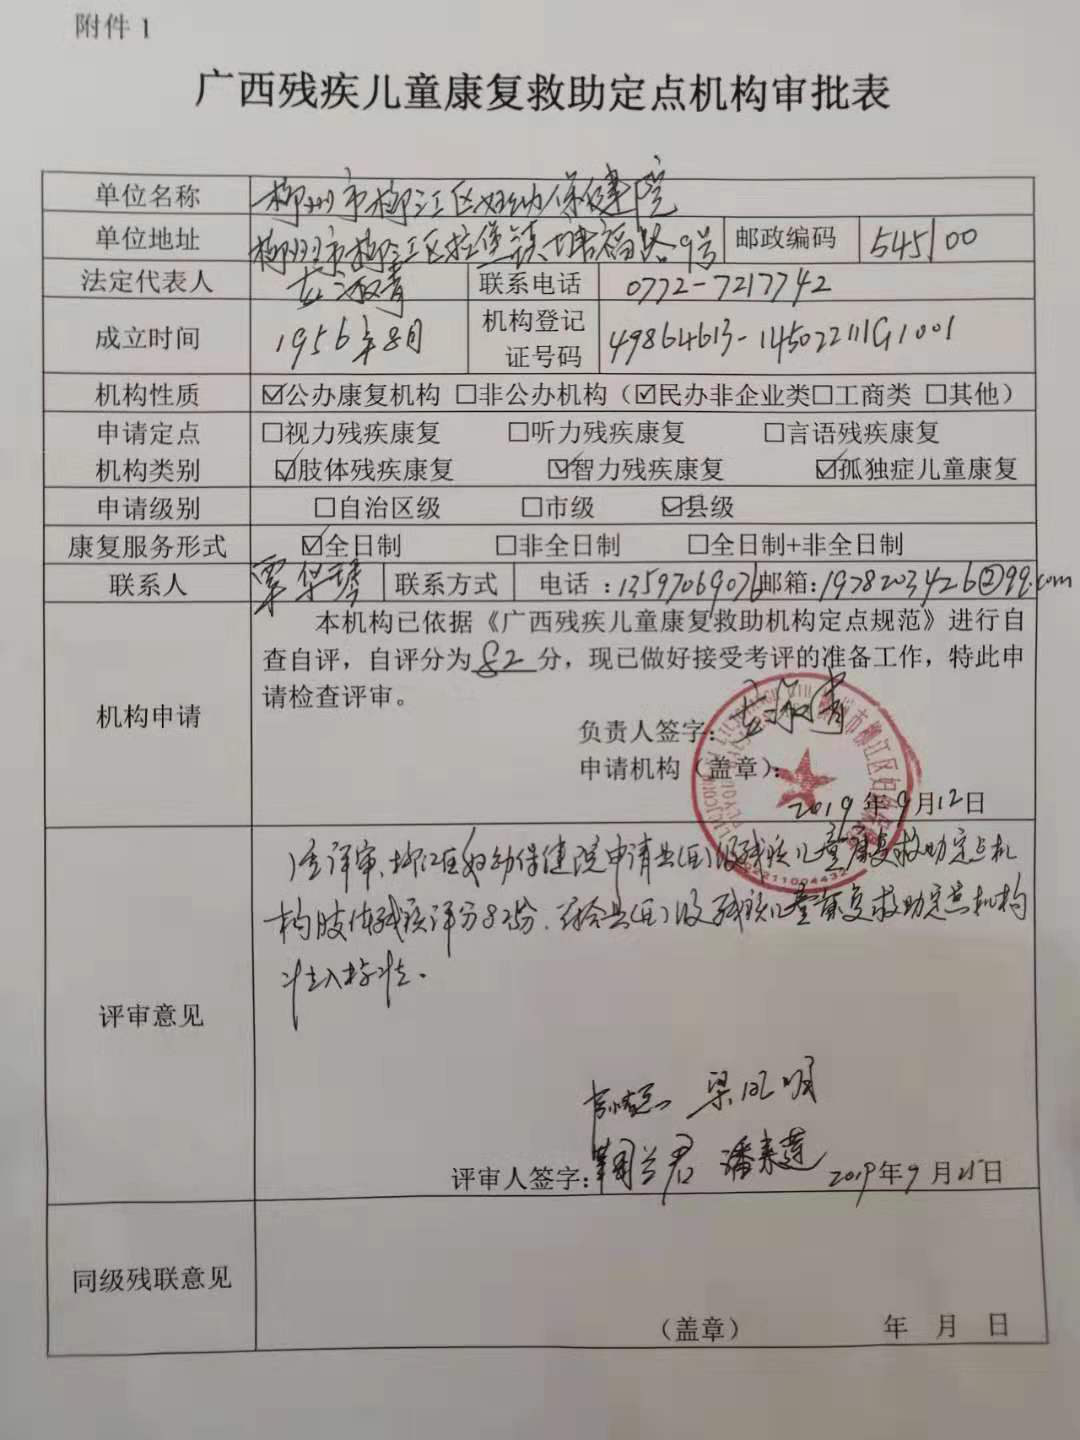 附件 1
广西残疾儿童康复救助定点机构审批表
单位名称 柳州市柳江区妇幼保健院
单位地址 柳州市柳江区拉堡镇塘福路9号 邮政编码 545100
法定代表人 韦淑青 联系电话 0772-7217742
成立时间 1956年8月 机构登记证号码 49864613-145022111G1001
机构性质 ☑公办康复机构 □非公办机构（☑民办非企业类□工商类 □其他）
申请定点 □视力残疾康复 □听力残疾康复 □言语残疾康复
机构类别 ☑肢体残疾康复 ☑智力残疾康复 ☑孤独症儿童康复
申请级别 □自治区级 □市级 ☑县级
康复服务形式 ☑全日制 □非全日制 □全日制+非全日制
联系人 覃华 联系方式 电话：13597069076 邮箱：1978203426@qq.com
本机构已依据《广西残疾儿童康复救助机构定点规范》进行自
查自评，自评分为82分，现已做好接受考评的准备工作，特此申
请检查评审。
机构申请
负责人签字：韦淑青
申请机构（盖章）：
2019年9月12日
经评审，柳江区妇幼保健院申请县(区)级残疾儿童康复救助定点机
构肢体残疾评分82份，符合县(区)级残疾儿童康复救助定点机构
准入标准。
评审意见
梁凤明
评审人签字： 兰君 潘来莲 2019年9月25日
同级残联意见
（盖章） 年 月 日